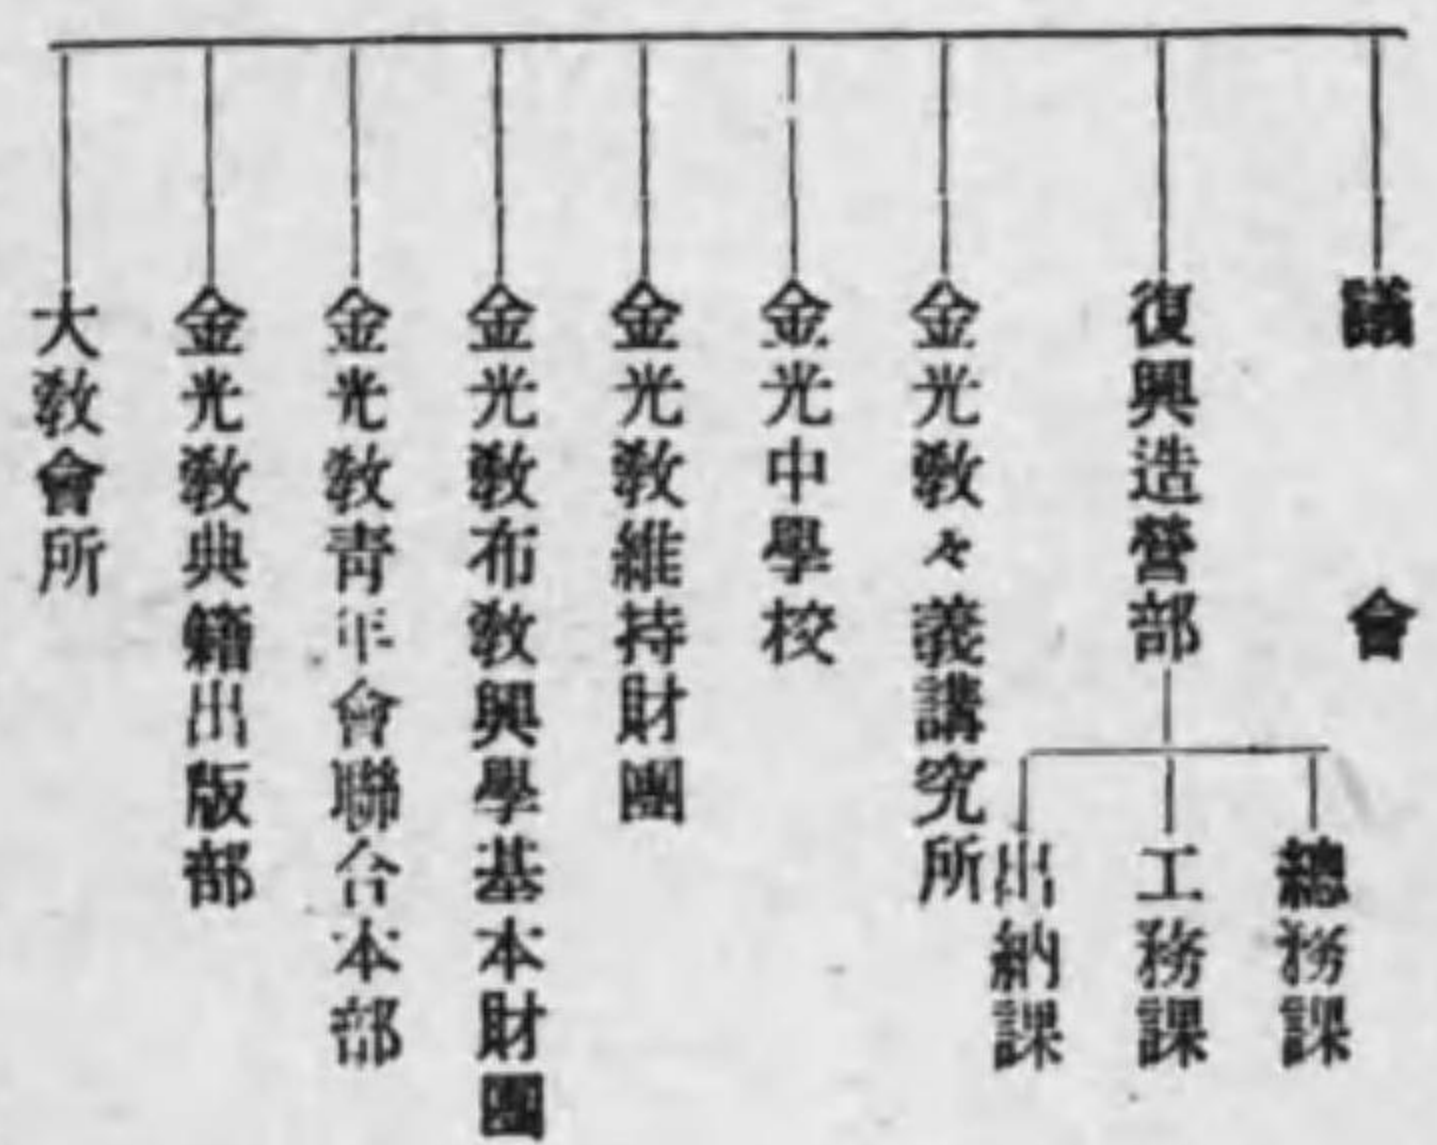 議會
復興造營部
總務課
工務課
出納課
金光敎々義講究所
金光中學校
金光敎維持財團
金光敎布敎興學基本財團
金光敎靑年會聯合本部
金光敎典籍出版部
大敎會所